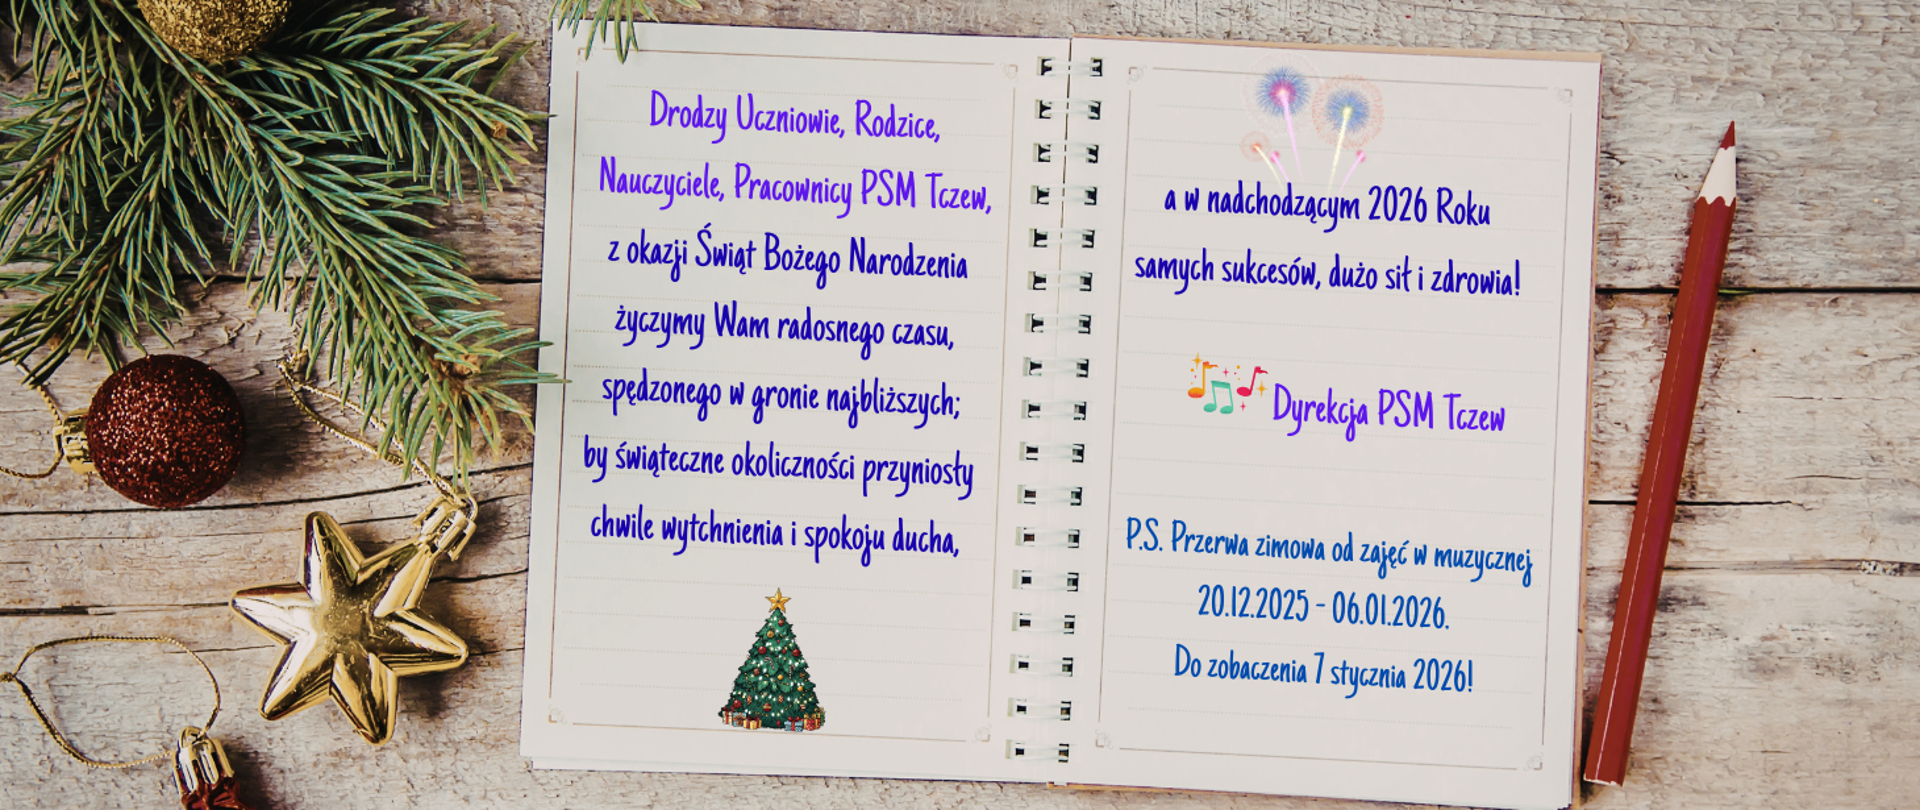 Drodzy Uczniowie, Rodzice,
Nauczyciele, Pracownicy PSM Tczew,
z okazji Świąt Bożego Narodzenia
życzymy Wam radosnego czasu,
spędzonego w gronie najbliższych;
by świąteczne okoliczności przyniosły
chwile wytchnienia i spokoju ducha,
a w nadchodzącym 2026 Roku
samych sukcesów, dużo sił i zdrowia!
Dyrekcja PSM Tczew
P.S. Przerwa zimowa od zajęć w muzycznej
20.12.2025 - 06.01.2026.
Do zobaczenia 7 stycznia 2026!